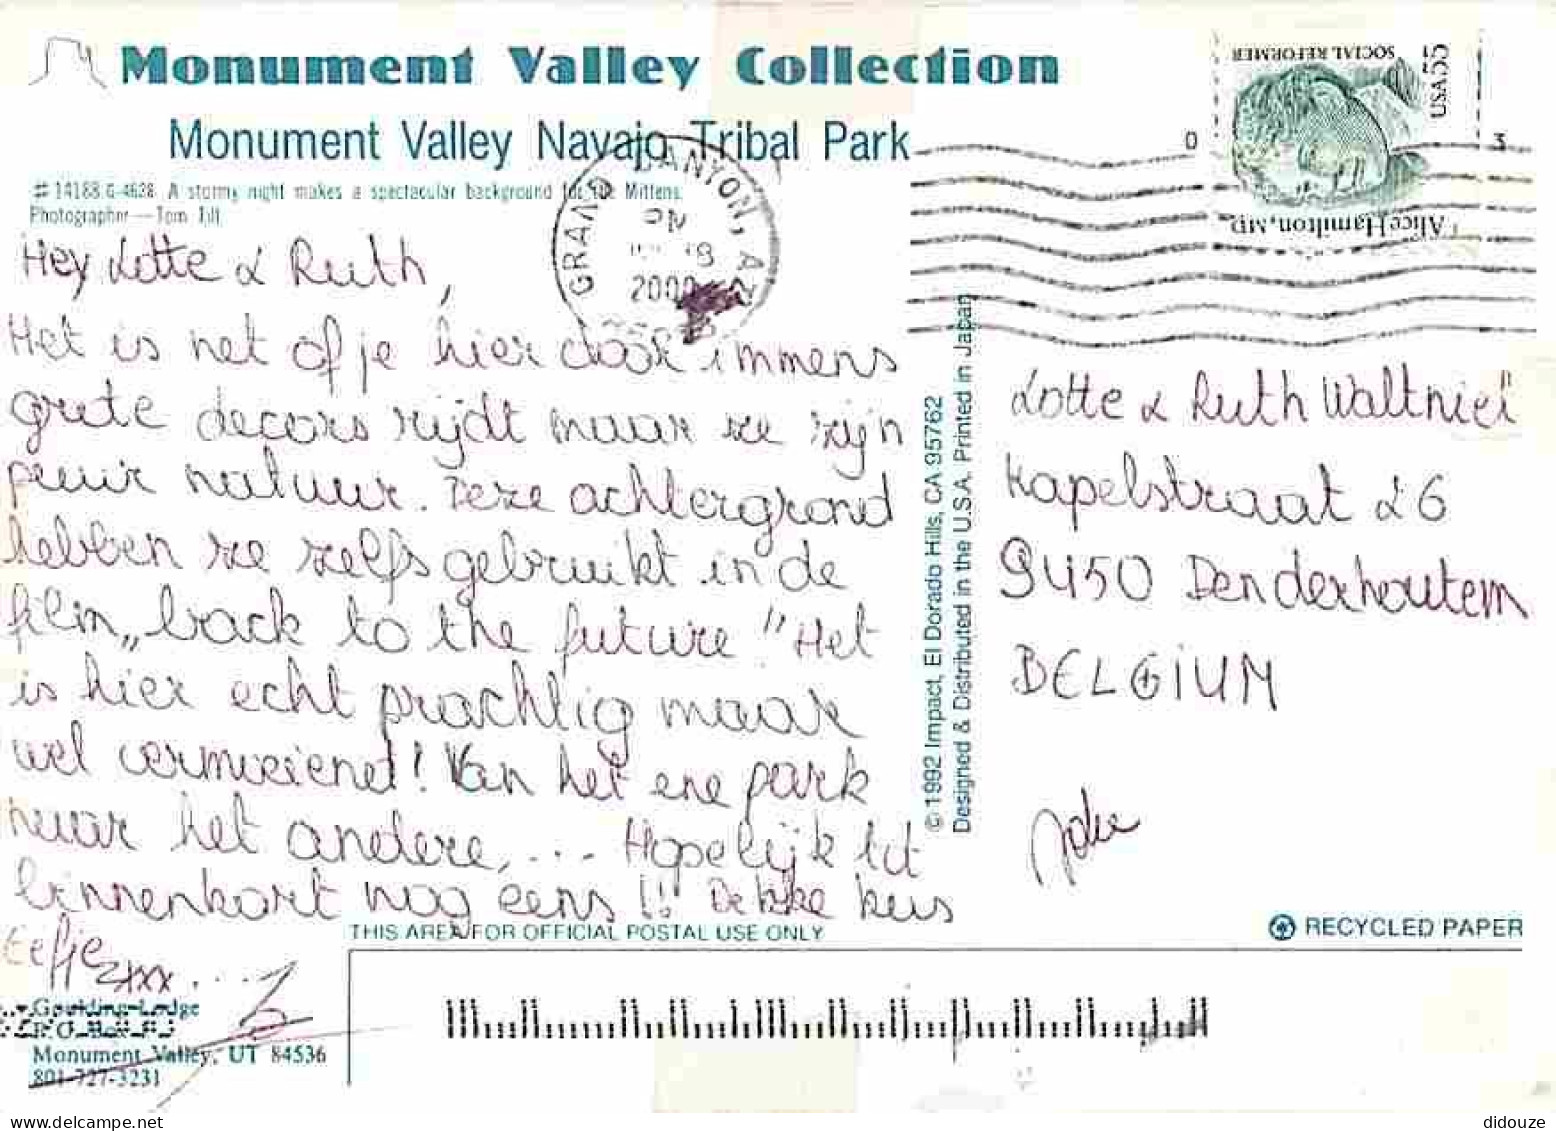 Monument Valley Collection
Monument Valley Navajo Tribal Park
# 14188 G-4628 A stormy night makes a spectacular background for the Mittens.
Photographer — Tom Till
GRAND CANYON, AZ
PM
2000
SOCIAL REFORMER
55
USA
Alice Hamilton, MD
0 3
Hey Lotte & Ruth,
Het is net of je hier door immens
grote decors rijdt maar ze zijn
puur natuur. Deze achtergrond
hebben ze zelfs gebruikt in de
film „back to the future" Het
is hier echt prachtig maar
wel vermoeiend! Van het ene park
naar het andere, ... Hopelijk tot
binnenkort nog eens!! Dikke kus
Eefje xxx ...
Lotte & Ruth Waltniel
Kapelstraat 26
9450 Denderhoutem
BELGIUM
© 1992 Impact, El Dorado Hills, CA 95762
Designed & Distributed in the U.S.A. Printed in Japan
THIS AREA FOR OFFICIAL POSTAL USE ONLY
RECYCLED PAPER
Goulding Lodge
Monument Valley, UT 84536
801-727-3231
didouze